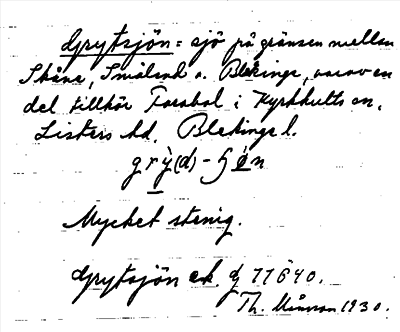 Grytsjön = sjö på gränsen mellan
Skåne, Småland o. Blekinge, varav en
del tillhör Farabol i Kyrkhults sn,
Listers hd, Blekinge l.
Mycket stenig.
Grytsjön ek. 11640.
Th. 1930.